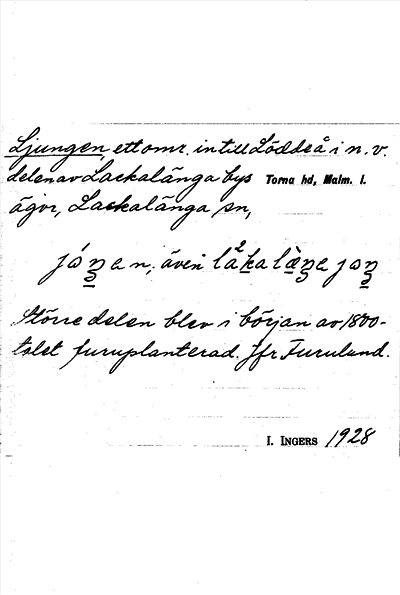 Ljungen, ett omr. intill Löddeå i n.v.
delen av Lackalänga bys Torna hd, Malm. l.
ägor, Lackalänga sn,
även
Större delen blev i början av 1800-
talet furuplanterad. Jfr Furulund.
I. INGERS 1928